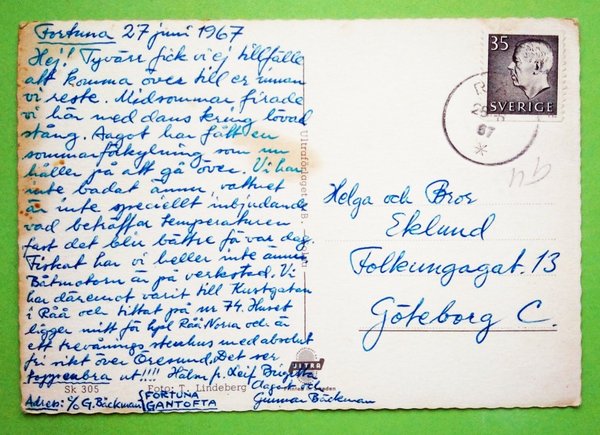 Fortuna 27 juni 1967
Hej! Tyvärr fick vi ej tillfälle
att komma över till er innan
vi reste. Midsommar firade
vi här med dans kring lövad
stång. Aagot har fått en
sommarförkylning som nu
håller på att gå över. Vi har
inte badat ännu, vattnet
är inte speciellt inbjudande
vad beträffar temperaturen
fast det blir bättre få var dag.
Fiskat har vi heller inte ännu
Båtmotorn är på verkstad. Vi
har däremot varit till Kustgatan
i Råå och tittat på nr 74. Huset
ligger mitt för hpl Råå Norra och är
ett trevånings stenhus med absolut
fri sikt över Öresund. Det ser
toppenbra ut!!!! Häls. fr. Leif Birgitta
Aagot och
Gunnar Bäckman
Adress: c/o G. Bäckman FORTUNA
GANTOFTA
Sk 305
Foto: T. Lindeberg
Ultraförlaget A.B.
ULTRA
35
SVERIGE
67
Helga och Bror
Eklund
Folkungagat. 13
Göteborg C.